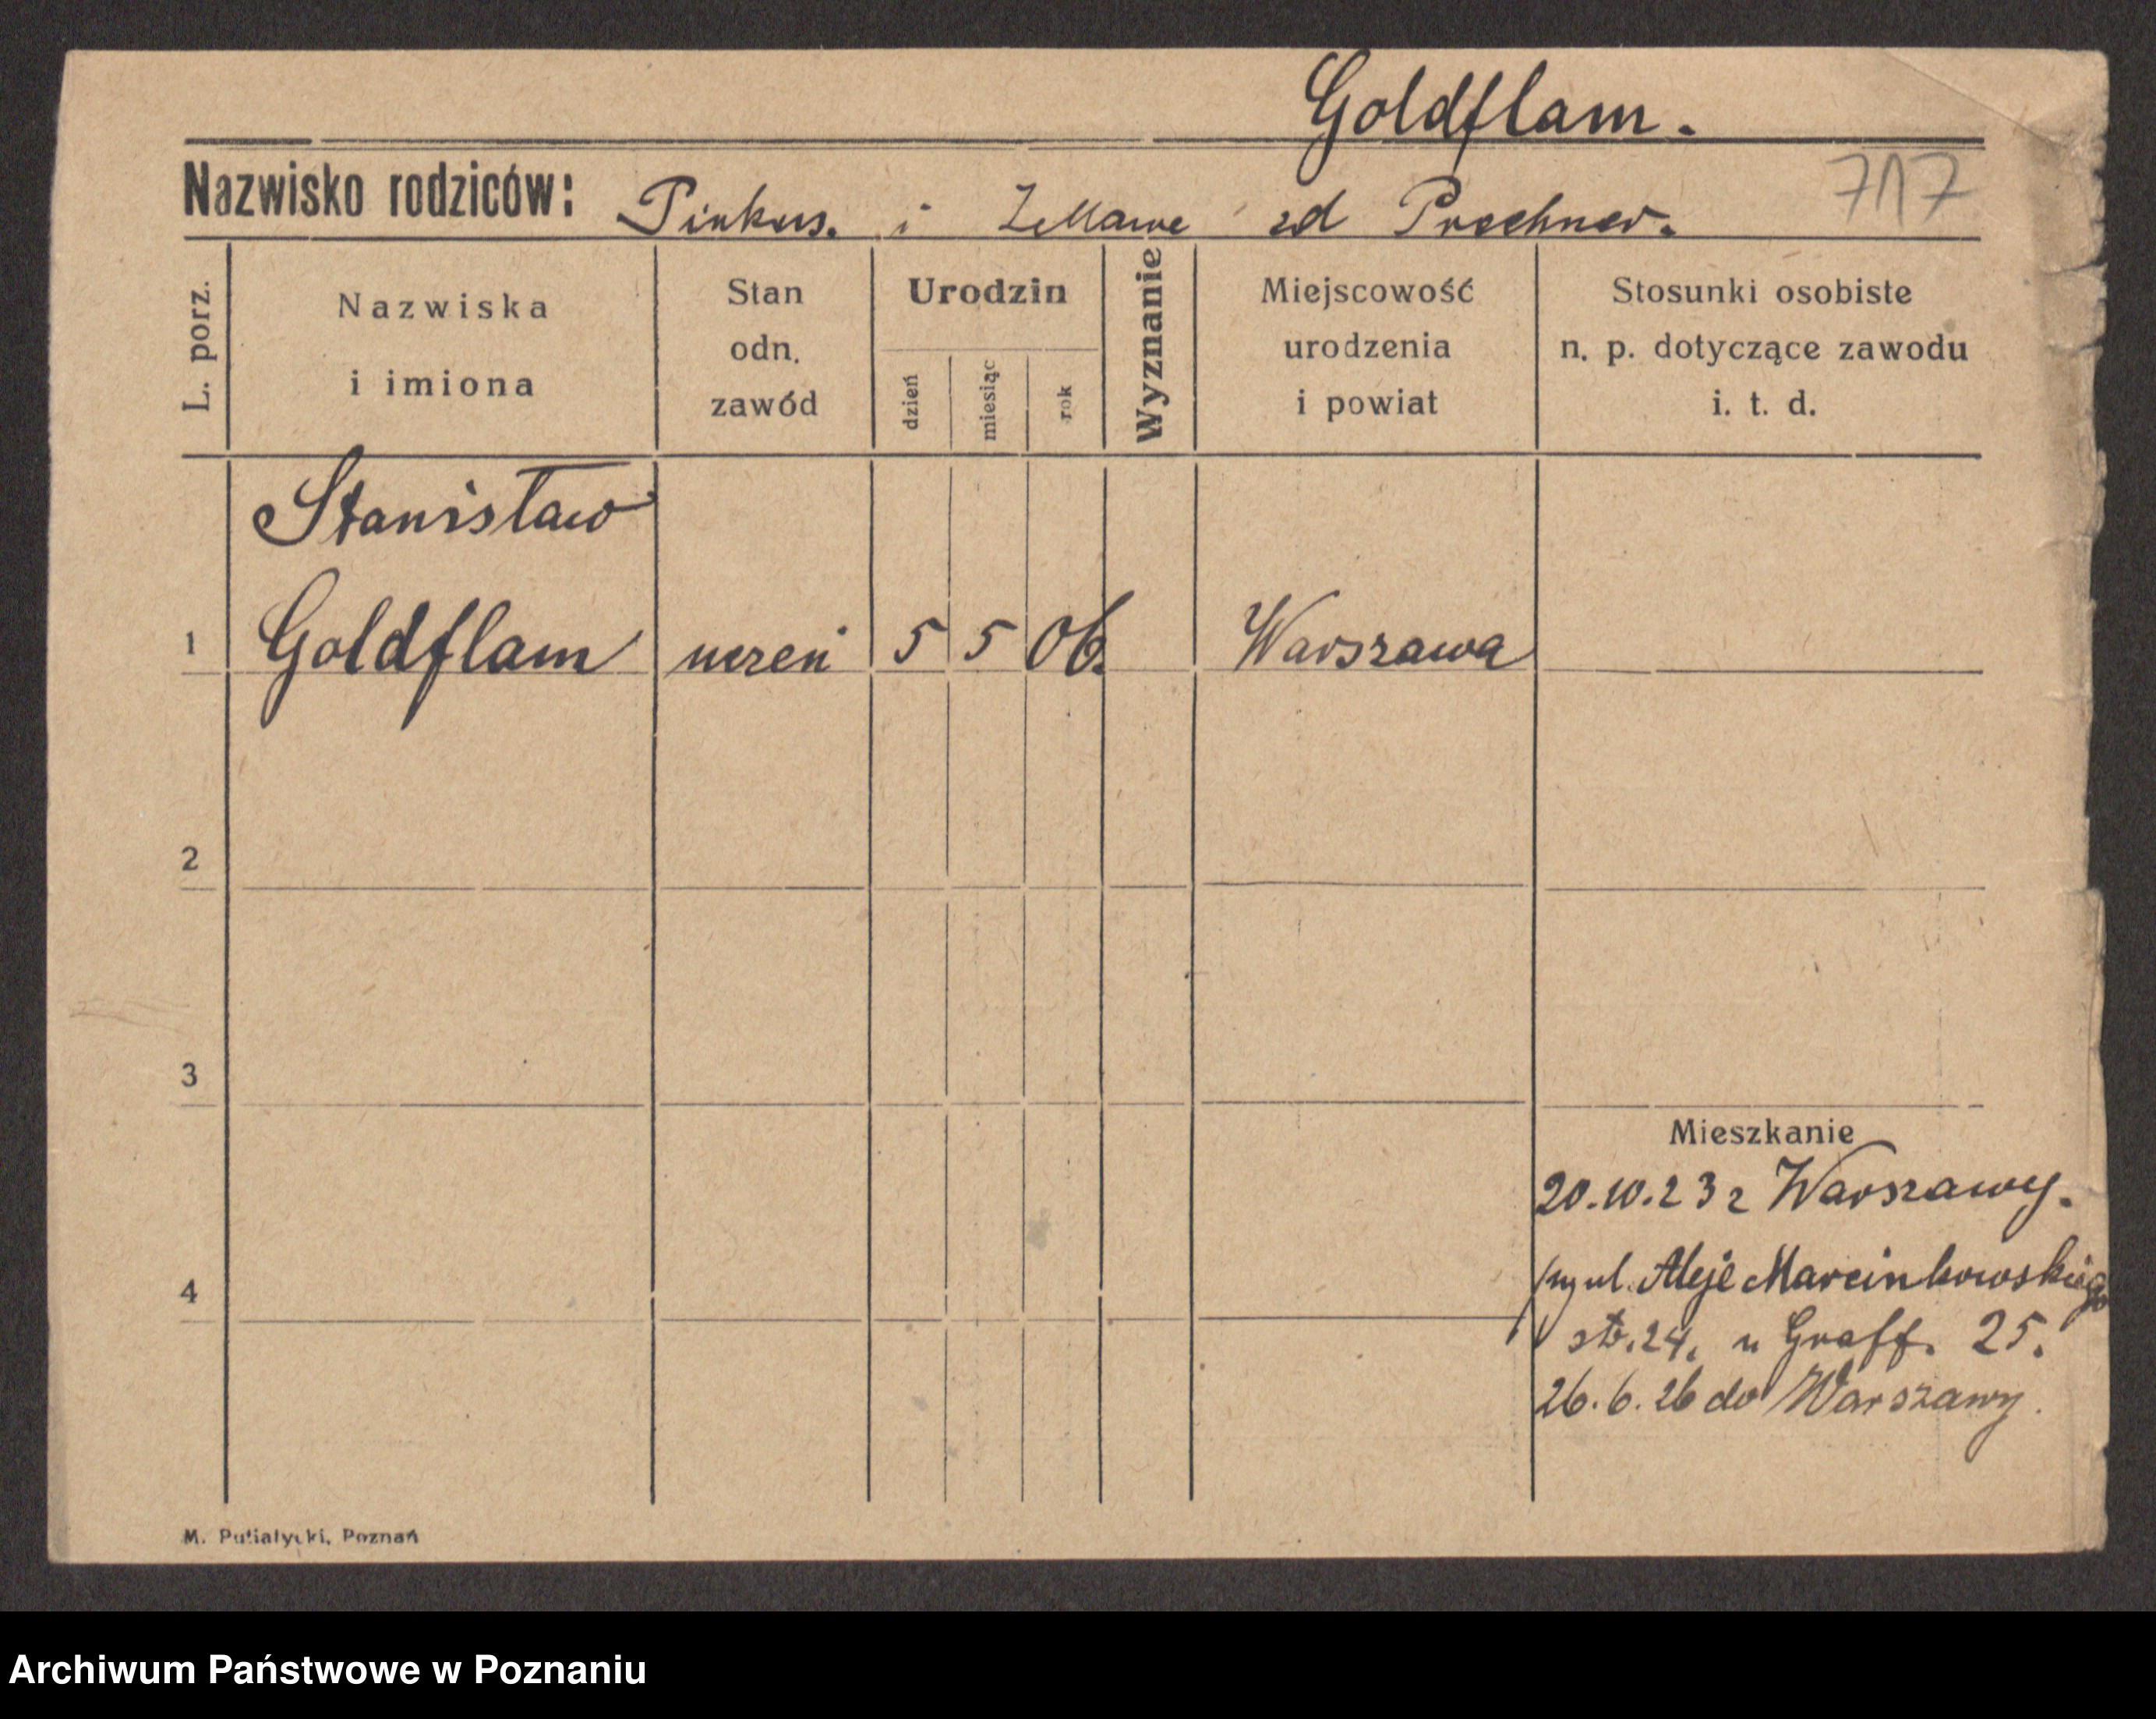 Goldflam.
Nazwisko rodziców: Pinkus. i zd Prechner.
717
L. porz.
Nazwiska
i imiona
Stan
odn.
zawód
Urodzin
dzień
miesiąc
rok
Wyznanie
Miejscowość
urodzenia
i powiat
Stosunki osobiste
n. p. dotyczące zawodu
i. t. d.
Stanisław
1 Goldflam uczeń 5 5 06. Warszawa
2
3
Mieszkanie
20.10.23 z Warszawy.
4
ul. Aleje Marcinkowskiego
24, u Graff. 25.
26.6.26 do Warszawy.
M. Putiatycki, Poznań
Archiwum Państwowe w Poznaniu